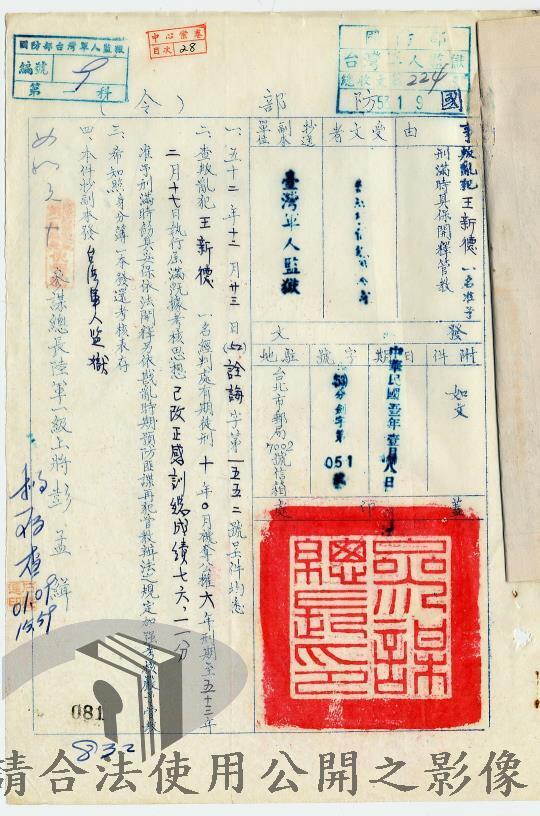 國防部台灣軍人監獄
編號 9
第一科
中心黨卷
目次 28
國防部
台灣軍人監獄
總收文
224
53 1 9
國防部
(令)
事由
叛亂犯王新德一名准予
刑滿時具保開釋管教
受文者
抄送副本單位
臺灣軍人監獄
附件
如文
發文
日期
中華民國
字號
051
駐地
台北市郵局7002號信箱
蓋印
參謀總長印
一、五十二年十二月廿三日(52)詮誨字第一五五二號呈件均悉
二、查叛亂犯王新德一名經判處有期徒刑十年0月褫奪公權六年刑期至五十三年
二月十七日執行屆滿既據考核思想已改正感訓總成績七六.一一分
准予刑滿時飭具妥保依法開釋並依戡亂時期預防匪諜再犯管教辦法之規定加強考核嚴予管教
三、希知照身分簿一本發還考核表存
四、本件抄副本發台灣軍人監獄
參謀總長陸軍一級上將彭孟緝
01.09
15.59
081
832
請合法使用公開之影像